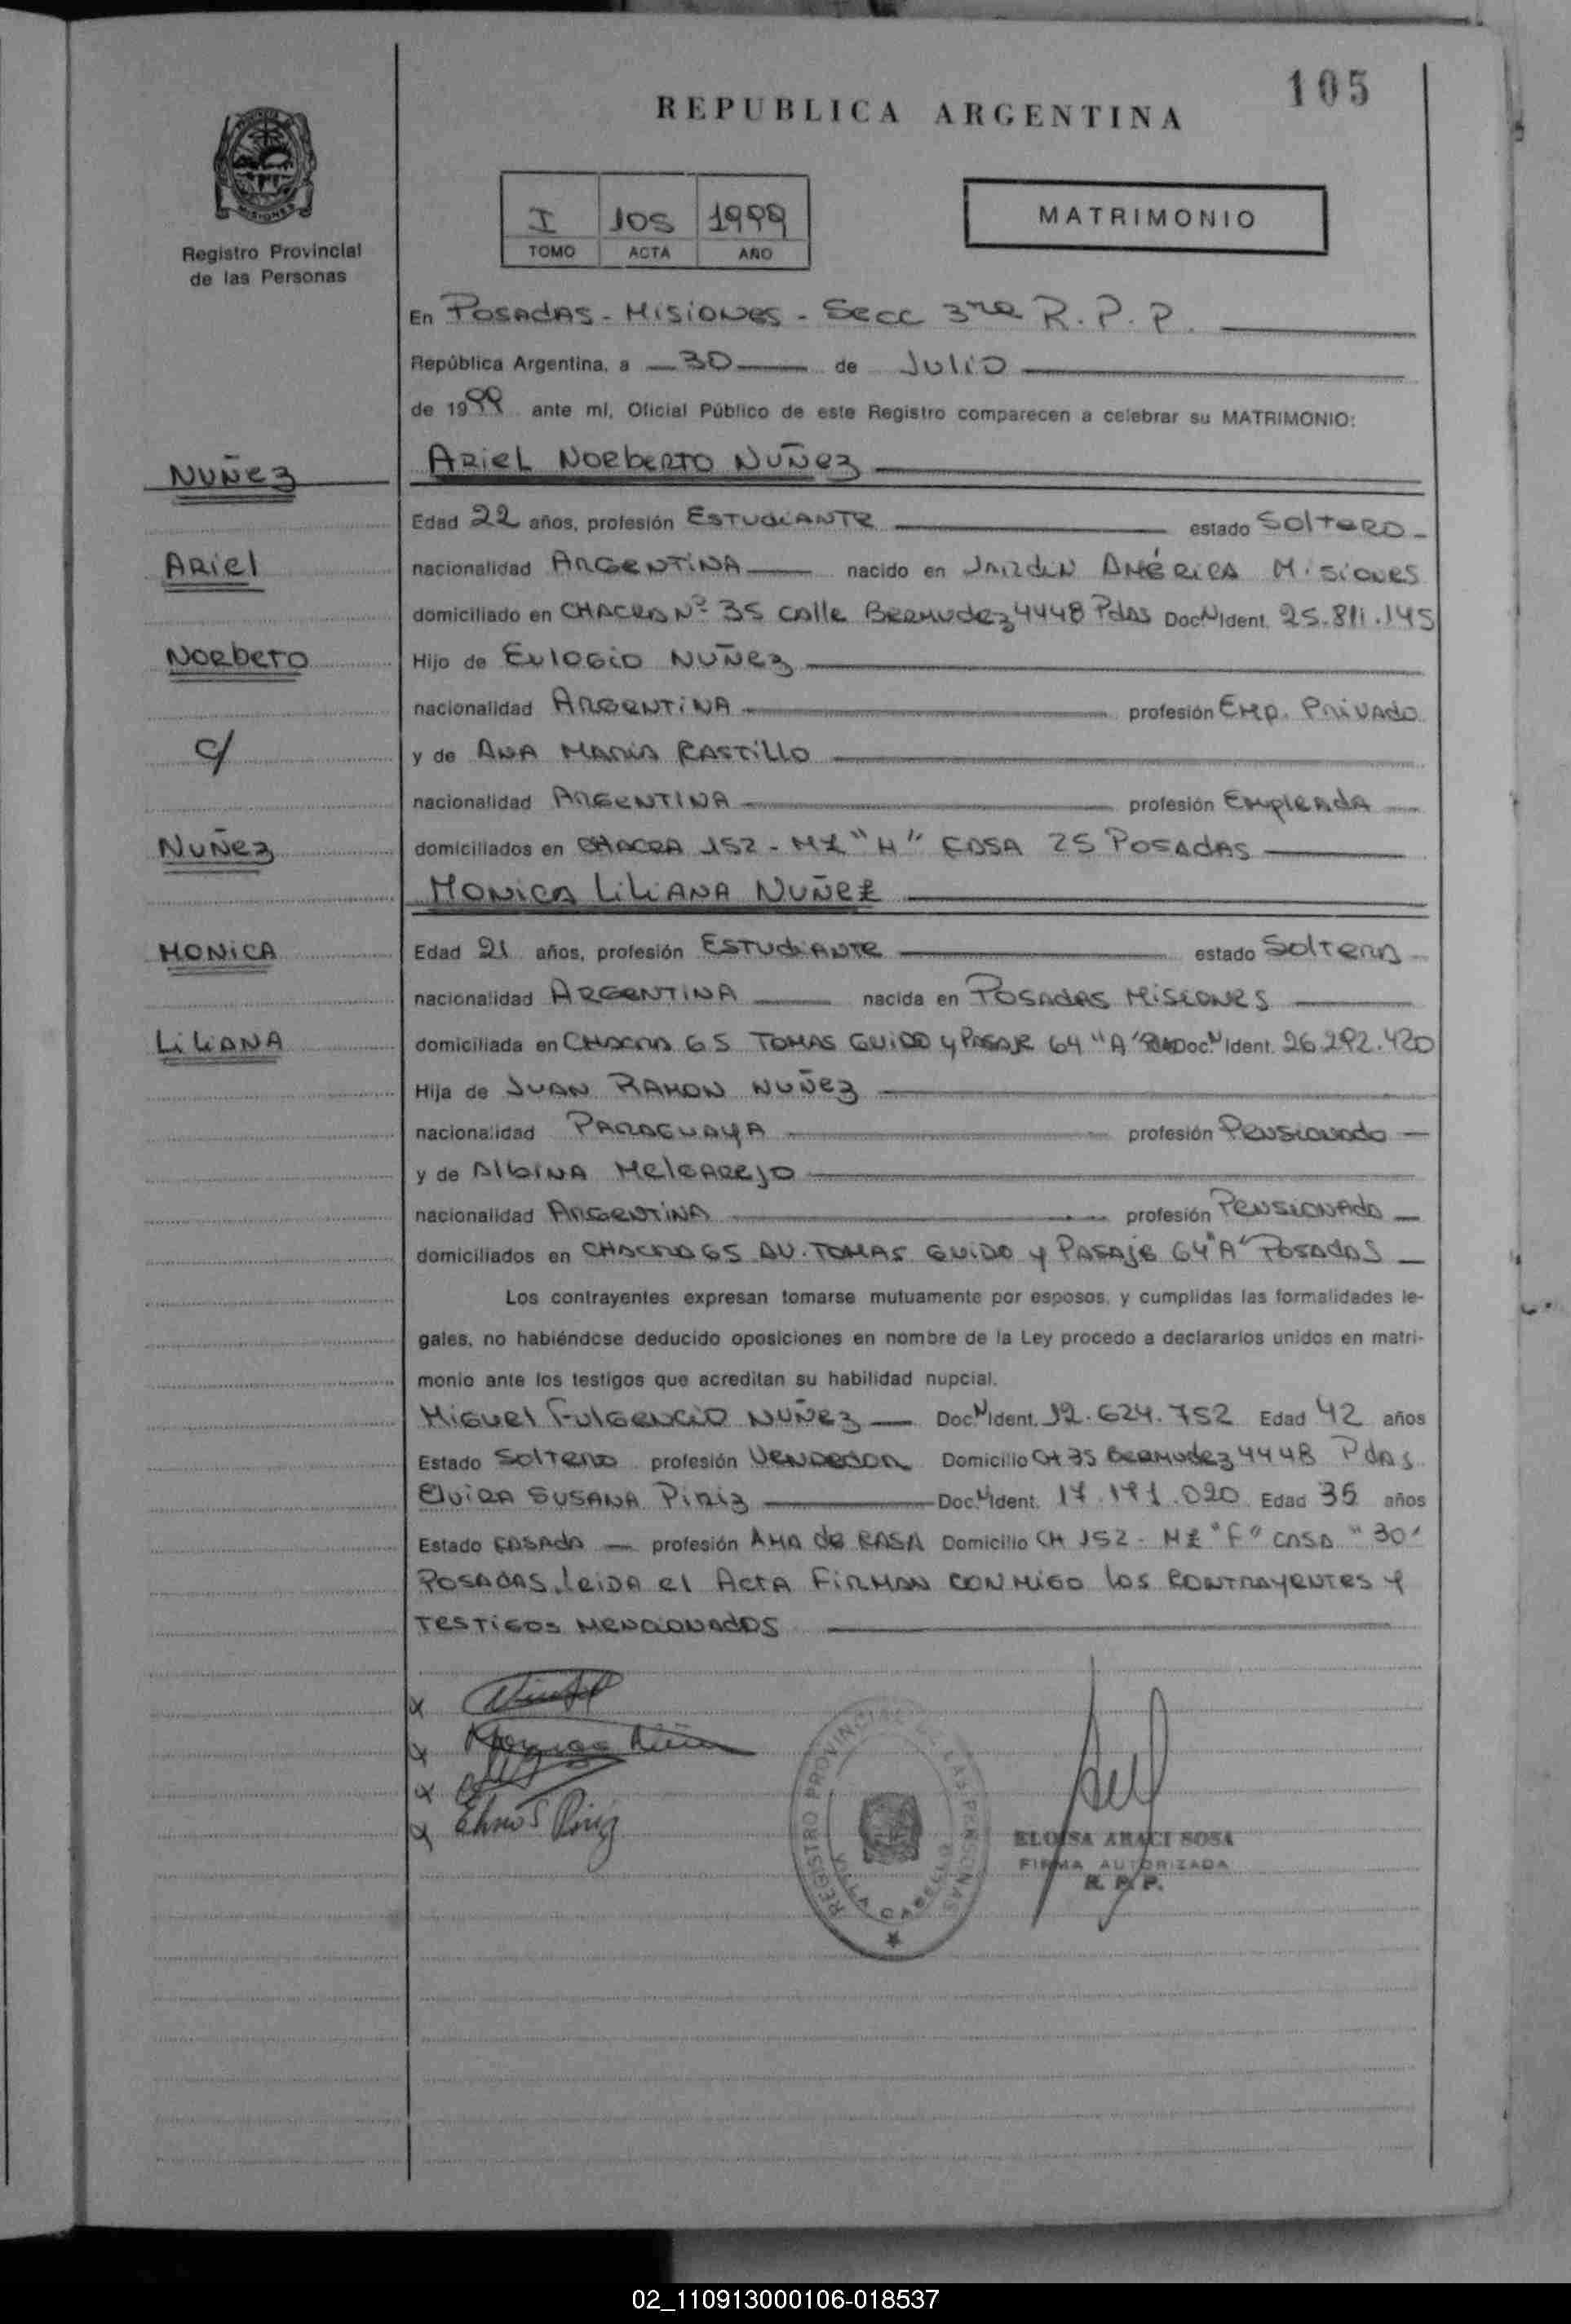 105
REPUBLICA ARGENTINA
I 105 1999
TOMO ACTA AÑO
MATRIMONIO
MISIONES
Registro Provincial
de las Personas
En POSADAS - MISIONES - Secc 3ra R.P.P.
República Argentina, a 30 de JULIO
de 1999 ante mí, Oficial Público de este Registro comparecen a celebrar su MATRIMONIO:
NUÑEZ
ARIEL NORBERTO NUÑEZ
Edad 22 años, profesión ESTUDIANTE estado SOLTERO
ARIEL
nacionalidad ARGENTINA nacido en JARDIN AMÉRICA MISIONES
domiciliado en CHACRA Nº 35 CALLE BERMUDEZ 4448 Pdas Doc N Ident. 25.811.145
NORBETO
Hijo de EULOGIO NUÑEZ
nacionalidad ARGENTINA profesión EMP. PRIVADO
C/
y de ANA MARIA CASTILLO
nacionalidad ARGENTINA profesión EMPLEADA
NUÑEZ
domiciliados en CHACRA 152 - MZ "H" CASA 25 POSADAS
MONICA LILIANA NUÑEZ
MONICA
Edad 21 años, profesión ESTUDIANTE estado SOLTERA
nacionalidad ARGENTINA nacida en POSADAS MISIONES
LILIANA
domiciliada en CHACRA 65 TOMAS GUIDO y PASAJE 64 "A" Doc. N Ident. 26.292.420
Hija de JUAN RAMON NUÑEZ
nacionalidad PARAGUAYA profesión PENSIONADO
y de ALBINA MELGAREJO
nacionalidad ARGENTINA profesión PENSIONADA
domiciliados en CHACRA 65 AV. TOMAS GUIDO y PASAJE 64 "A" POSADAS
Los contrayentes expresan tomarse mutuamente por esposos, y cumplidas las formalidades le-
gales, no habiéndose deducido oposiciones en nombre de la Ley procedo a declararlos unidos en matri-
monio ante los testigos que acreditan su habilidad nupcial.
MIGUEL FULGENCIO NUÑEZ Doc N Ident. 12.624.752 Edad 42 años
Estado SOLTERO profesión VENDEDOR Domicilio CH 35 BERMUDEZ 4448 Pdas
ELVIRA SUSANA PIRIZ Doc. N Ident. 17.191.020 Edad 35 años
Estado CASADA profesión AMA de CASA Domicilio CH 152 - MZ "F" CASA "30"
POSADAS, LEIDA el ACTA FIRMAN CONMIGO los CONTRAYENTES y
TESTIGOS MENCIONADOS
REGISTRO PROVINCIAL DE LAS PERSONAS
VILLA CABELLO
ELOISA ARACI SOSA
FIRMA AUTORIZADA
R. P. P.
02_110913000106-018537